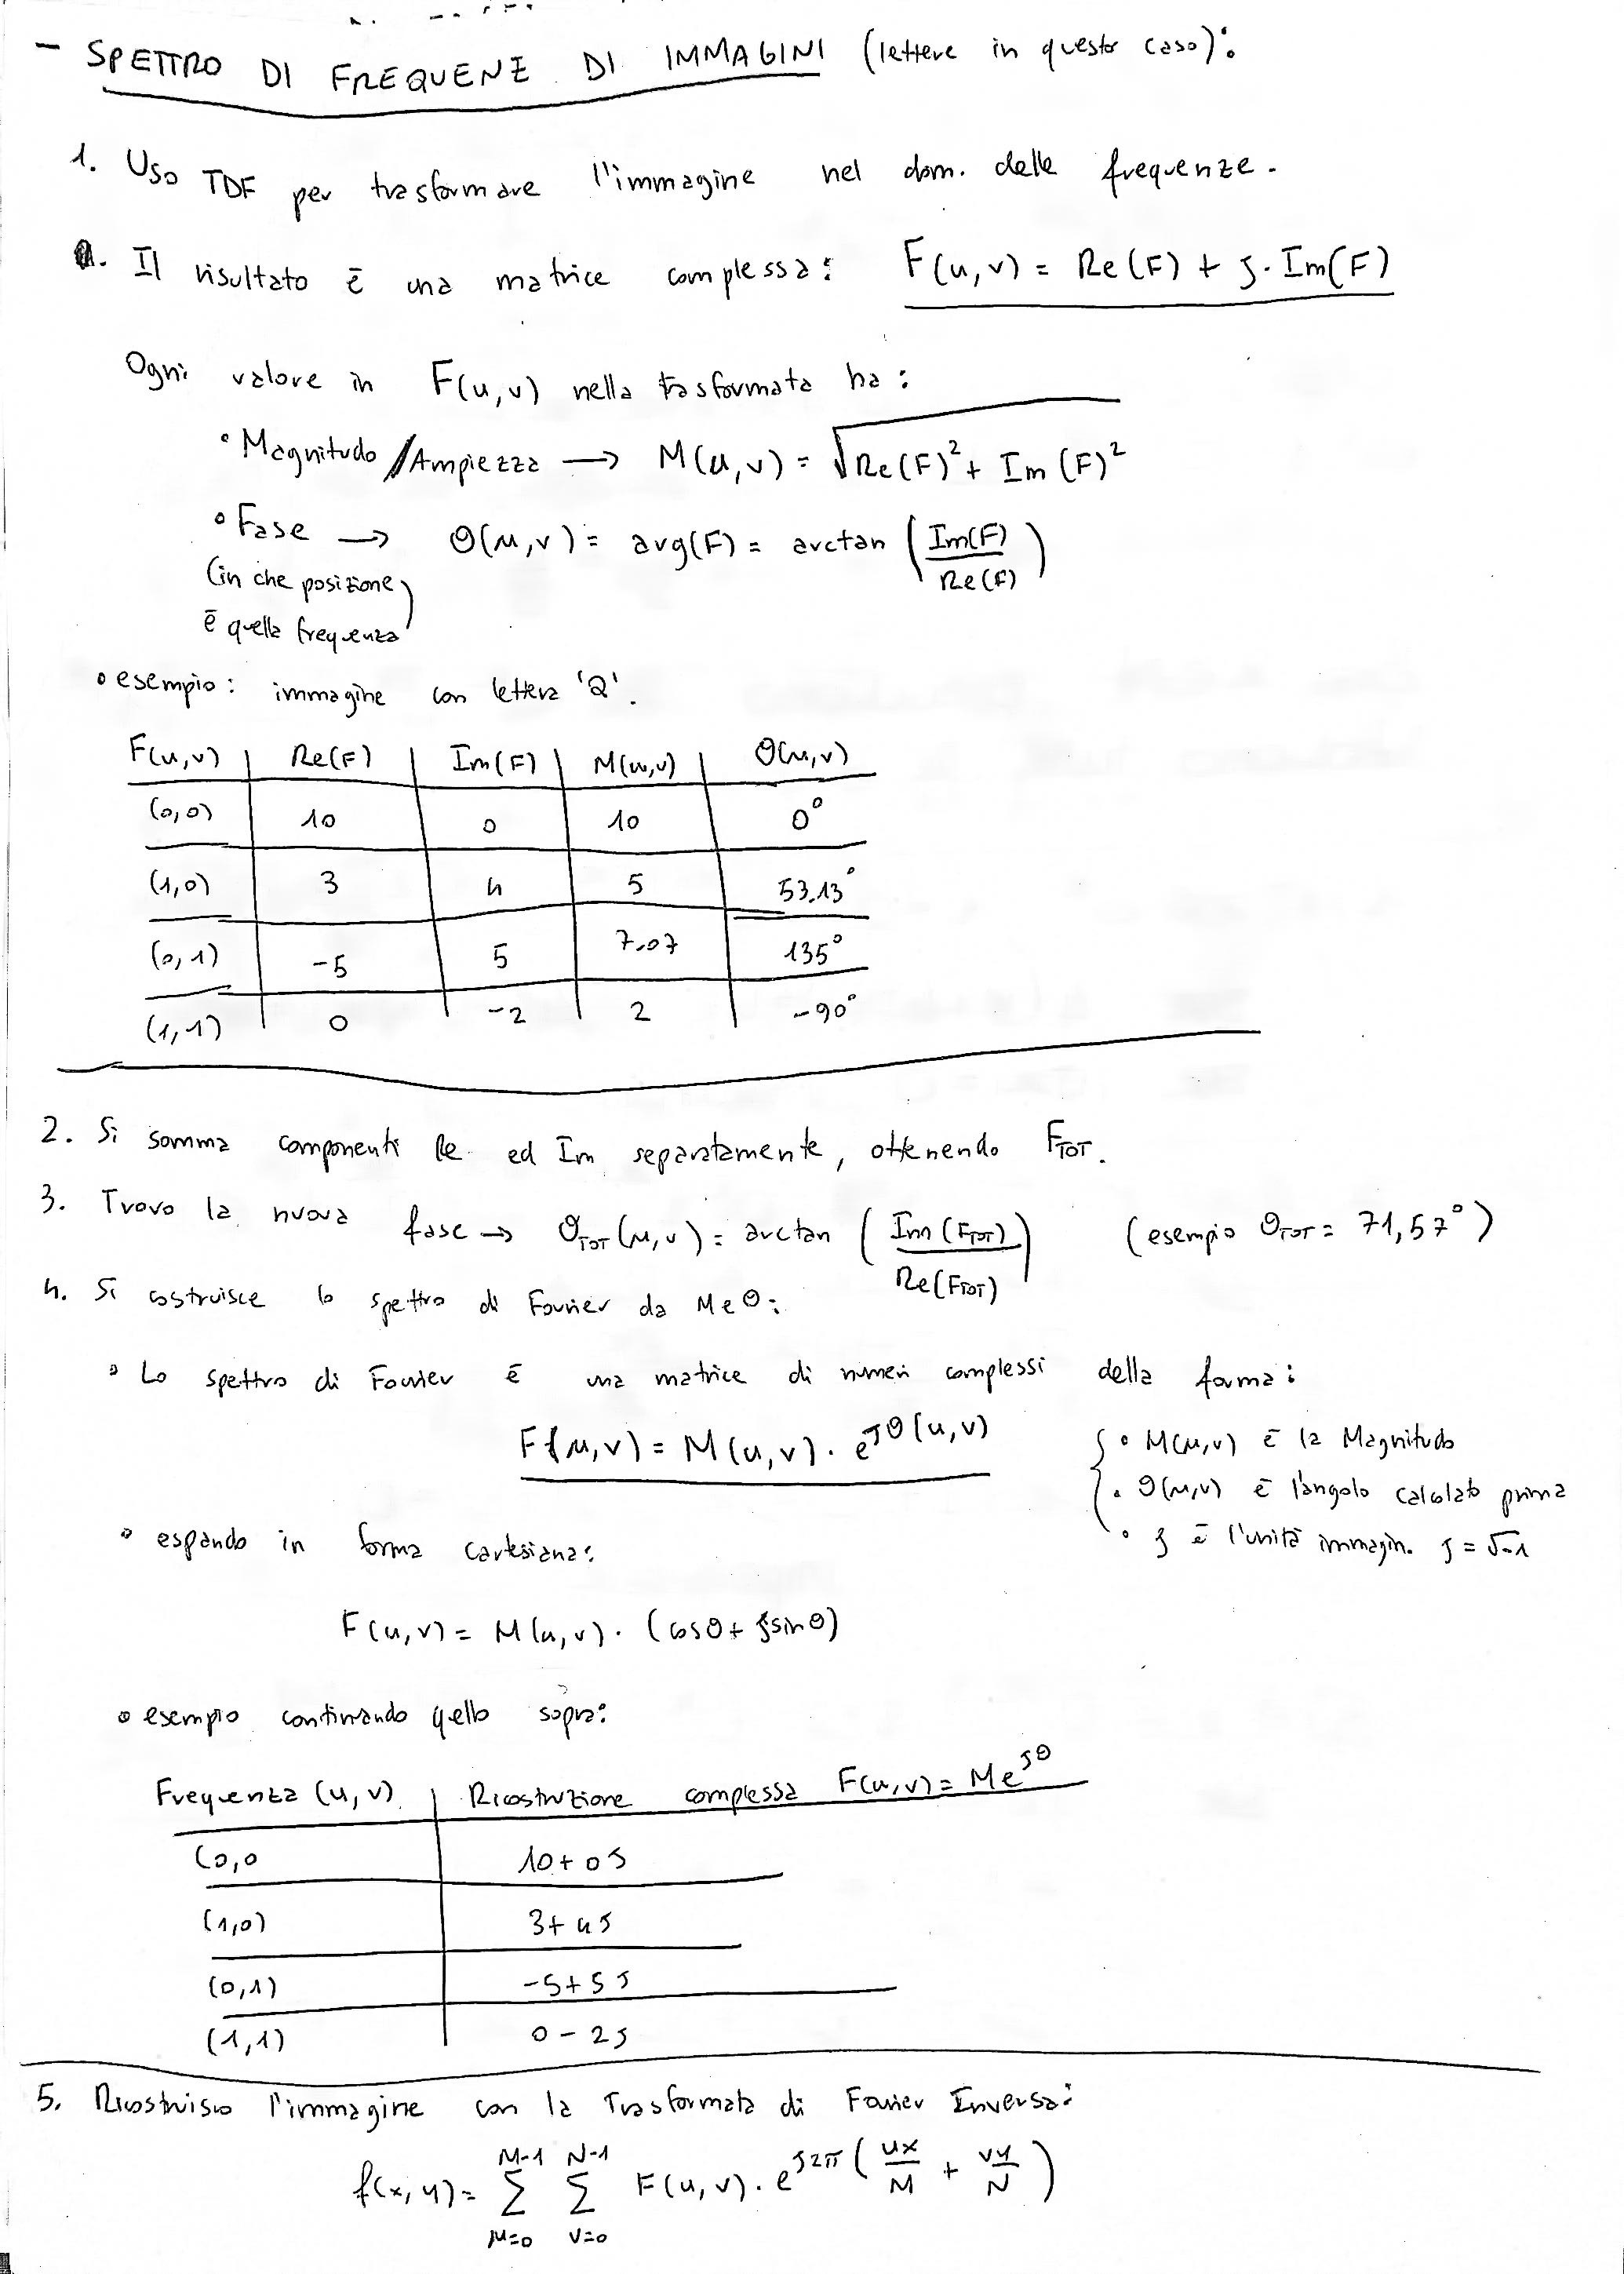 - SPETTRO DI FREQUENZ DI IMMAGINI (lettere in questo caso):
1. Uso TDF per trasformare l'immagine nel dom. delle frequenze.
. Il risultato è una matrice complessa: F(u,v) = Re(F) + j. Im(F)
Ogni valore in F(u,v) nella trasformata ha:
• Magnitudo /Ampiezza → M(u,v) = √Re(F)² + Im(F)²
• Fase → θ(u,v) = arg(F) = arctan (Im(F)/Re(F))
(in che posizione
è quella frequenza)
• esempio: immagine con lettera 'Q'.
F(u,v) | Re(F) | Im(F) | M(u,v) | θ(u,v)
(0,0) 10 0 10 0°
(1,0) 3 4 5 53.13°
(0,1) -5 5 7.07 135°
(1,1) 0 -2 2 -90°
2. Si somma componenti Re ed Im separatamente, ottenendo FTOT.
3. Trovo la nuova fase → θTOT(u,v) = arctan (Im(FTOT)/Re(FTOT)) (esempio θTOT = 71,57°)
4. Si costruisce lo spettro di Fourier da M e θ:
• Lo spettro di Fourier è una matrice di numeri complessi della forma:
F(u,v) = M(u,v) . e^jθ(u,v)
{ • M(u,v) è la Magnitudo
• θ(u,v) è l'angolo calcolato prima
• j è l'unità immagin. j = √-1
• espando in forma cartesiana:
F(u,v) = M(u,v) . (cosθ + jsinθ)
• esempio continuando quello sopra:
Frequenza (u,v) | Ricostruzione complessa F(u,v) = Me^jθ
(0,0 10 + 0j
(1,0) 3 + 4j
(0,1) -5 + 5j
(1,1) 0 - 2j
5. Ricostruisco l'immagine con la Trasformata di Fourier Inversa:
f(x,y) = M-1 Σ u=0 N-1 Σ v=0 F(u,v) . e^j2π (ux/M + vy/N)